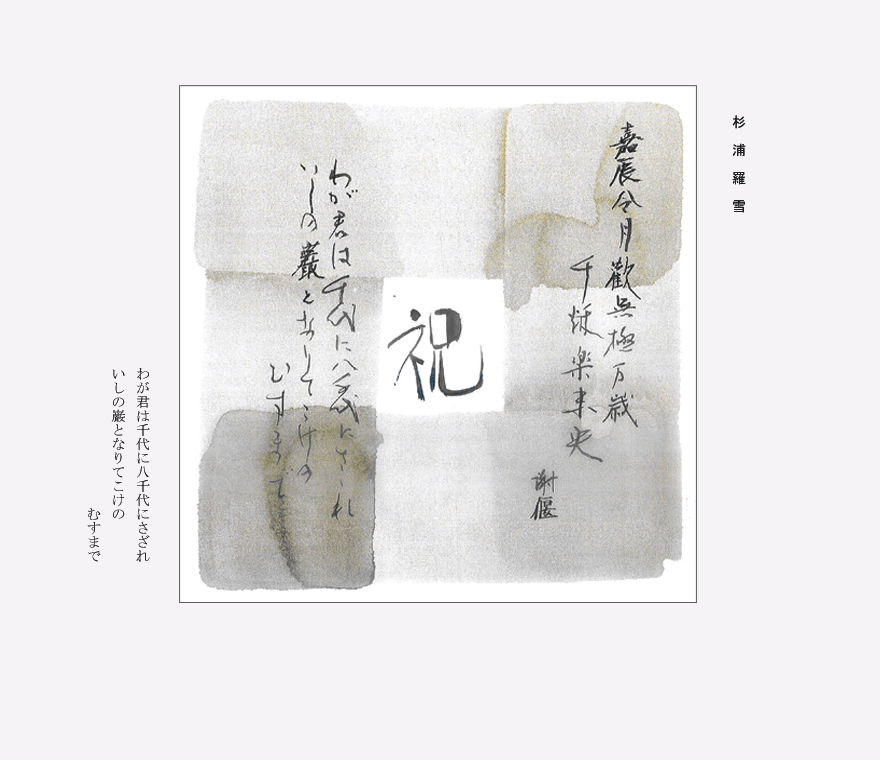 杉浦羅雪
嘉辰令月歓無極万歳
千秋楽未央
謝偃
祝
わが君は千代に八千代にさゝれ
いしの巌となりてこけの
むすまで
わが君は千代に八千代にさざれ
いしの巌となりてこけの
むすまで